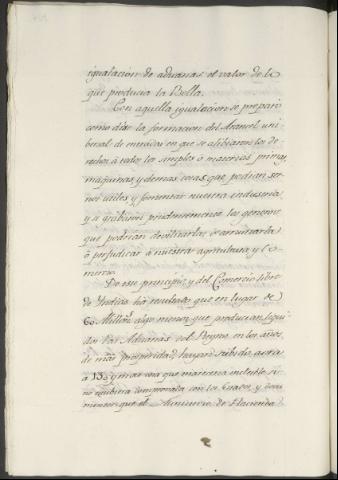 igualacion de aduanas el valor de lo
que producia la Bolla.
Con aquella igualacion se preparó
como dixe la formacion del Arancel uni
bersal de entradas en que se alibiaron los de
rechos á todos los simples ó materias primas,
maquinas y demas cosas que podian ser
nos utiles y fomentar nuestra industria,
y se grabaron prudentemente los generos
que podrian devilitarla, ó arruinarla
ó perjudicar á nuestra agricultura y Co
mercio.
De ese principio, y del Comercio libre
de Indias ha resultado que en lugar de
60 Millon.s algo menos que producian liqui
dos las Aduanas del Reyno en los años
de mas prosperidad, hayan subido aora
á 130 y mas cosa que pareciera increible si
no estubiera comprovada con los Estados, y docu
mentos que el Ministerio de Hacienda